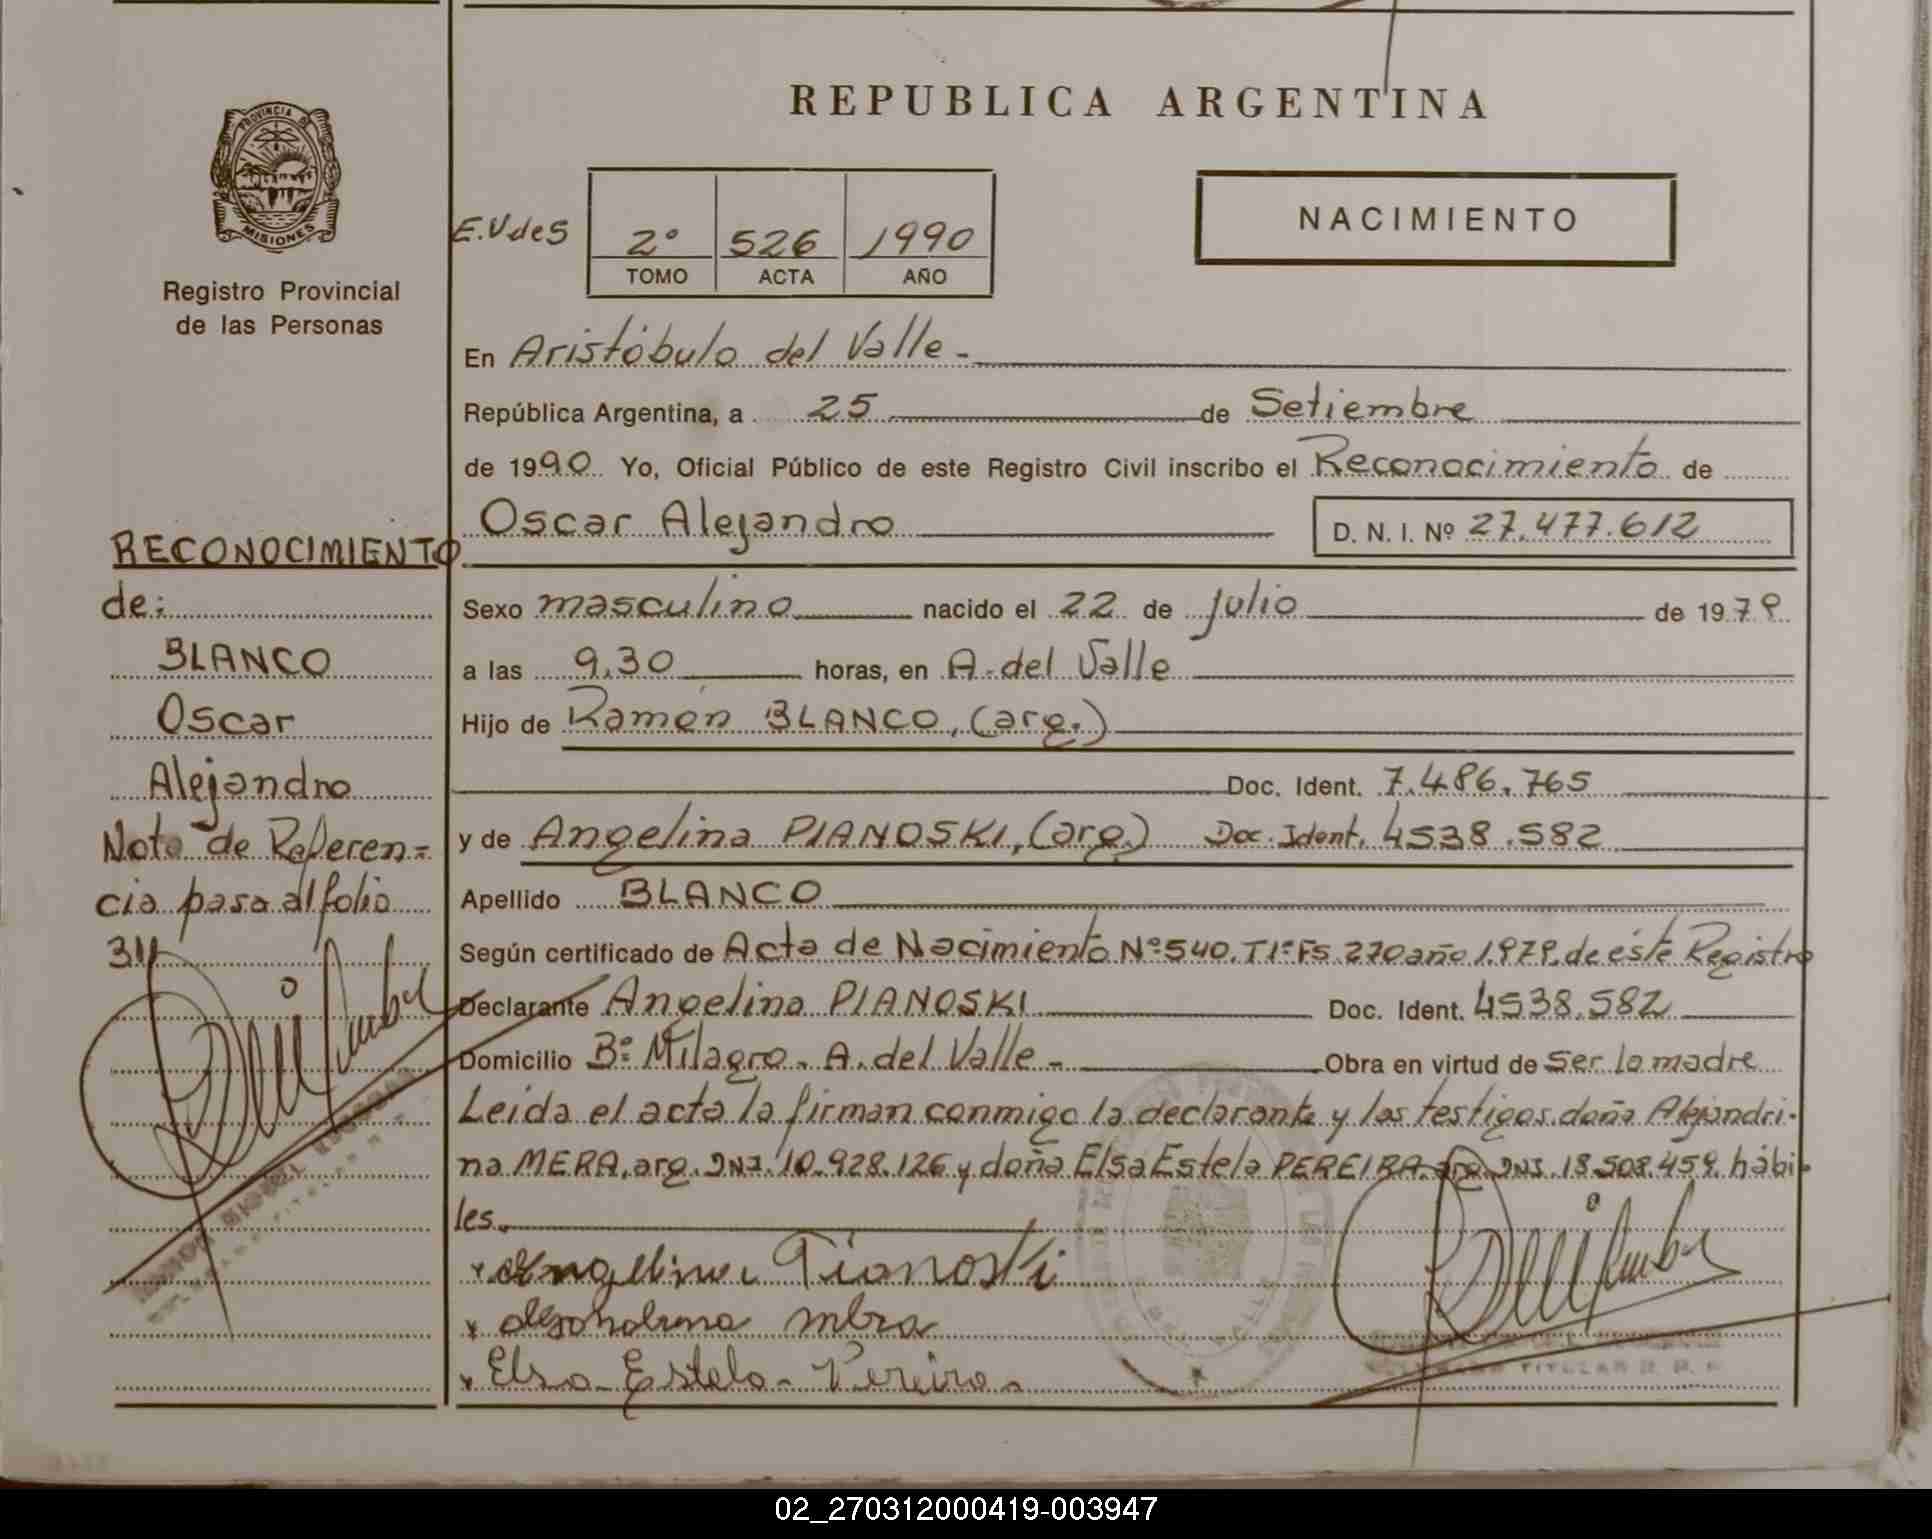 REPUBLICA ARGENTINA
PROVINCIA DE
MISIONES
Registro Provincial
de las Personas
E.V de S
2º 526 1990
TOMO ACTA AÑO
NACIMIENTO
En Aristóbulo del Valle -
República Argentina, a 25 de Setiembre
de 1990 Yo, Oficial Público de este Registro Civil inscribo el Reconocimiento de
Oscar Alejandro D. N. I. Nº 27.477.612
Sexo masculino nacido el 22 de julio de 1979
a las 9,30 horas, en A. del Valle
Hijo de Ramón BLANCO, (arg.)
Doc. Ident. 7.486.765
y de Angelina PIANOSKI, (arg.) Doc. Ident. 4538.582
Apellido BLANCO
Según certificado de Acta de Nacimiento Nº 540. Tº 1º FS. 270 año 1.979, de éste Registro
Declarante Angelina PIANOSKI Doc. Ident. 4538.582
Domicilio Bº Milagro - A. del Valle - Obra en virtud de ser la madre
Leida el acta la firman conmigo la declarante y las testigos doña Alejandri-
na MERA, arg. DNI. 10.928.126 y doña Elsa Estela PEREIRA arg. DNI. 18.508.459. hábi-
les.
Angelina Pianoski
Elsa Estela Pereira
RECONOCIMIENTO
de:
BLANCO
Oscar
Alejandro
Nota de Referen=
cia pasa al folio
311
02_270312000419-003947